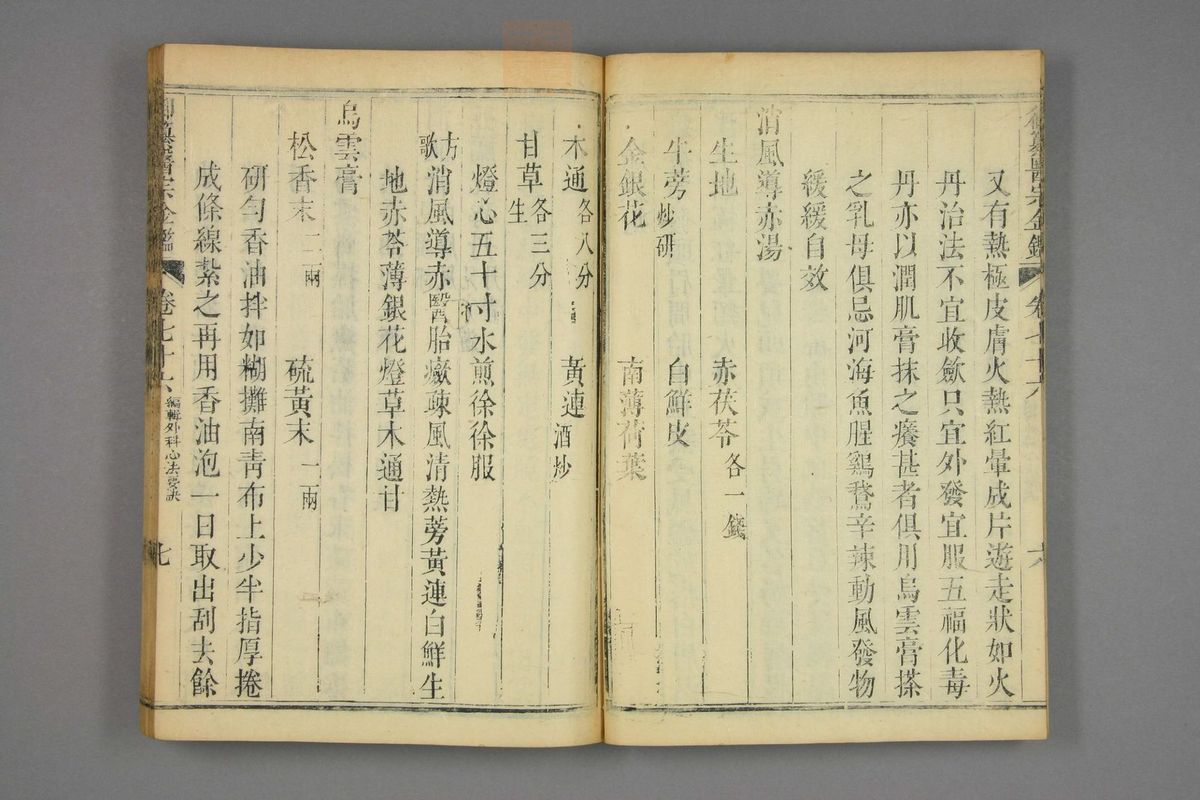 御纂醫宗金鑑 卷七十六 六
又有熱極皮膚火熱紅暈成片遊走狀如火
丹治法不宜收歛只宜外發宜服五福化毒
丹亦以潤肌膏抹之癢甚者俱用烏雲膏搽
之乳母俱忌河海魚腥鷄鵞辛辣動風發物
緩緩自效
消風導赤湯
生地 赤茯苓各一錢
牛蒡炒研 白鮮皮
金銀花 南薄荷葉
木通各八分 黃連酒炒
甘草生各三分
燈心五十寸水煎徐徐服
方歌 消風導赤醫胎癥疎風清熱蒡黃連白鮮生
地赤苓薄銀花燈草木通甘
烏雲膏
松香末二兩 硫黃末一兩
研勻香油拌如糊攤南青布上少半指厚捲
成條線紮之再用香油泡一日取出刮去餘
御纂醫宗金鑑 卷七十六 編輯外科心法要訣 七